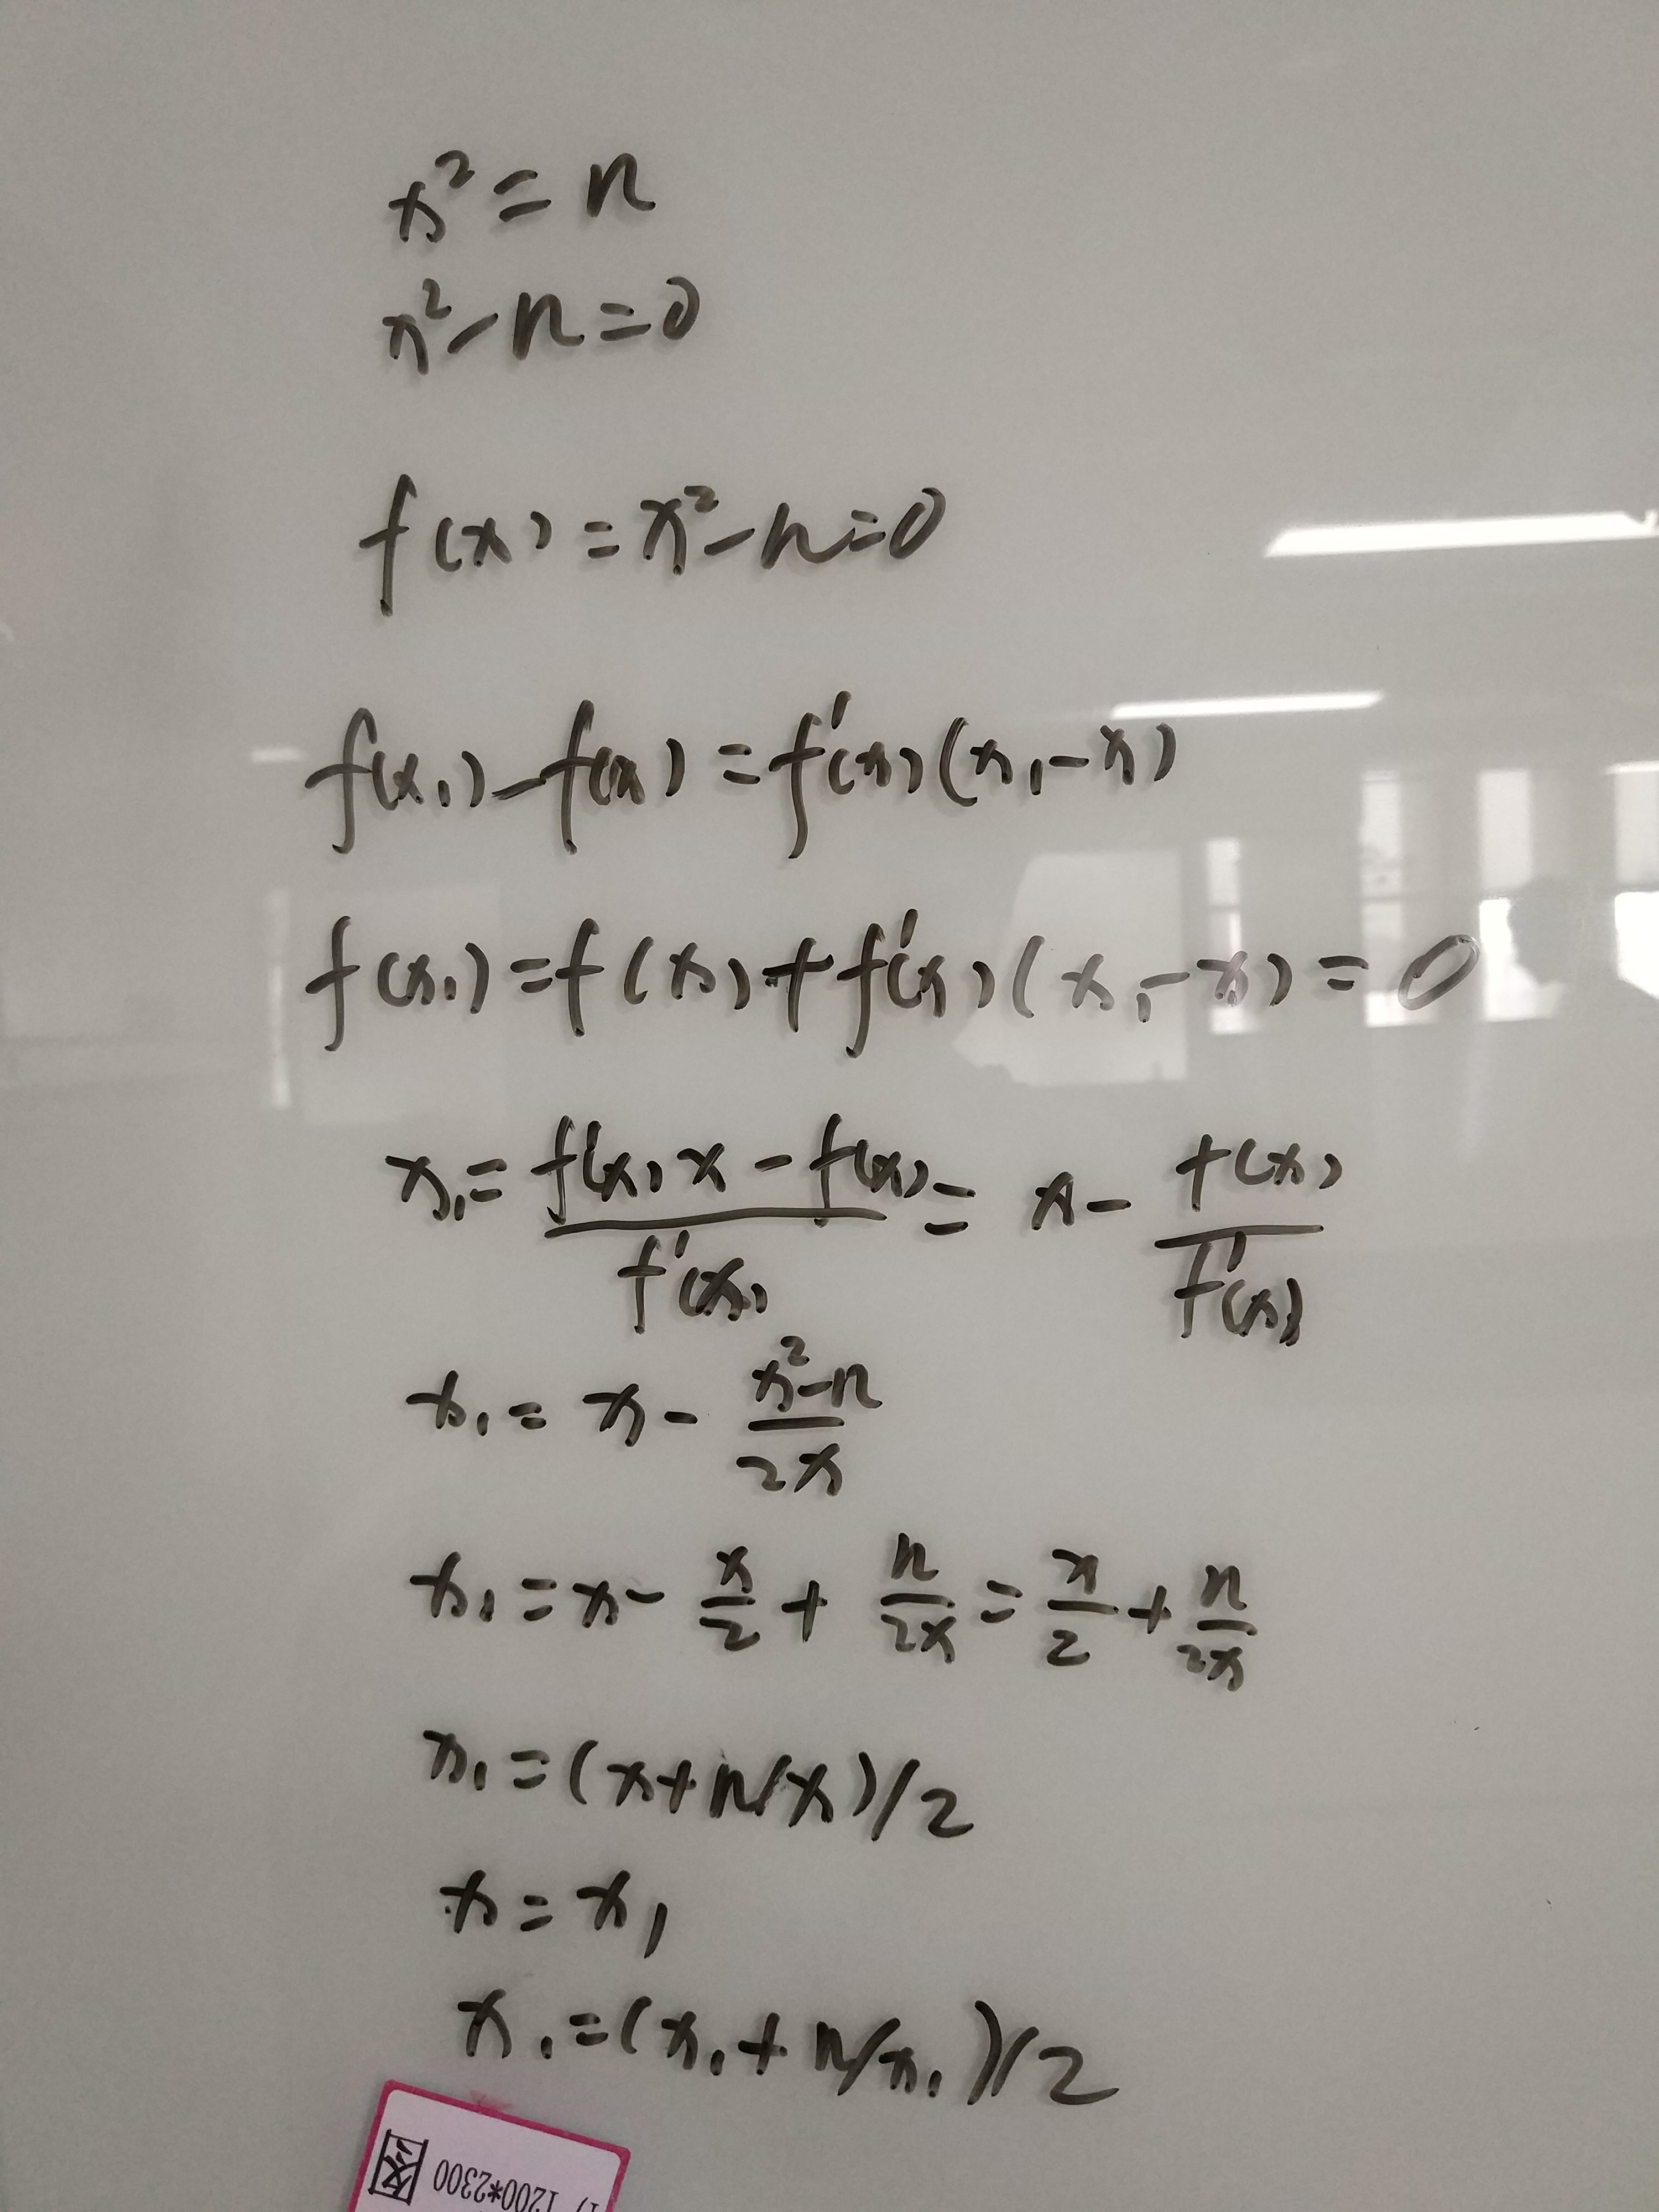 x² = n
x² - n = 0
f(x) = x² - n = 0
f(x₁) - f(x) = f'(x)(x₁ - x)
f(x₁) = f(x) + f'(x)(x₁ - x) = 0
x₁ = (f'(x)x - f(x))/f'(x) = x - f(x)/f'(x)
x₁ = x - (x² - n)/2x
x₁ = x - x/2 + n/2x = x/2 + n/2x
x₁ = (x + n/x)/2
x = x₁
x₁ = (x₁ + n/x₁)/2
1200*2300